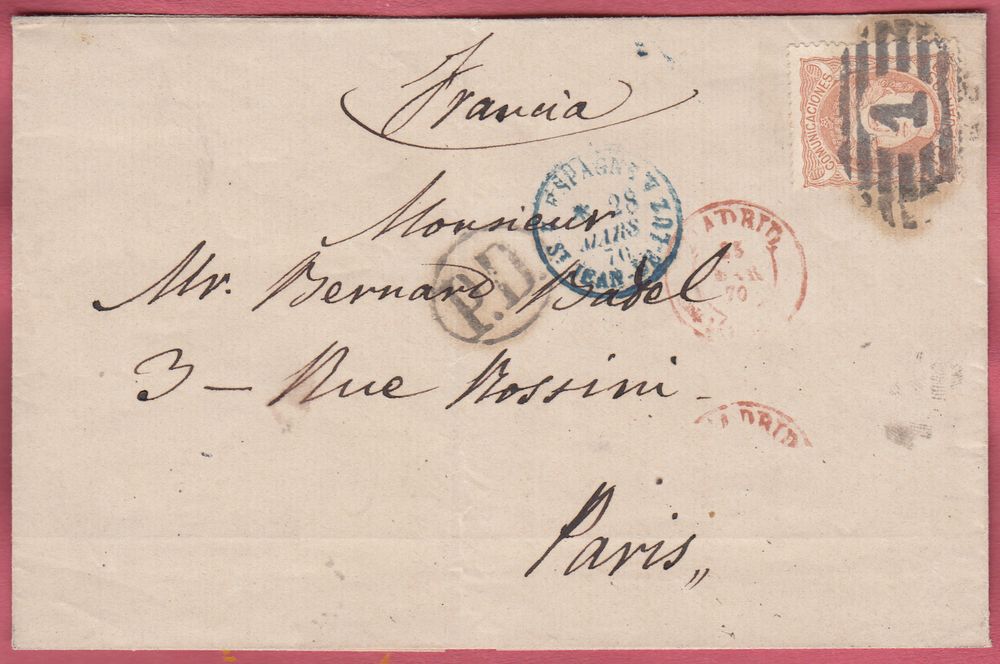 Francia
COMUNICACIONES
1
ESPAGNE
28
MARS
70
ST JEAN-DE-LUZ
Monsieur
P.D.
MADRID
MAR
70
Mr. Bernard Badel
3 - Rue Rossini -
MADRID
Paris,,